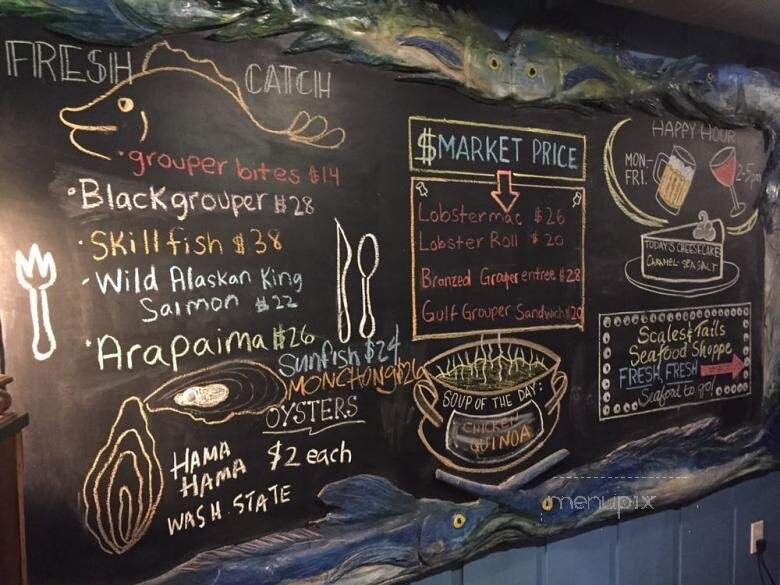 FRESH CATCH
·grouper bites $14
·Blackgrouper $28
·Skillfish $38
·Wild Alaskan King
Salmon $22
·Arapaima $26
Sunfish $24
MONCHONG $26
OYSTERS
HAMA
HAMA
$2 each
WASH. STATE
$MARKET PRICE
Lobstermac $26
Lobster Roll $20
Bronzed Grouper entree $28
Gulf Grouper Sandwich $20
SOUP OF THE DAY:
CHICKEN
QUINOA
HAPPY HOUR
MON-
FRI.
2-5pm
TODAY'S CHEESECAKE
CARAMEL SEA SALT
Scales & Tails
Seafood Shoppe
FRESH, FRESH
Seafood to go!
menupix